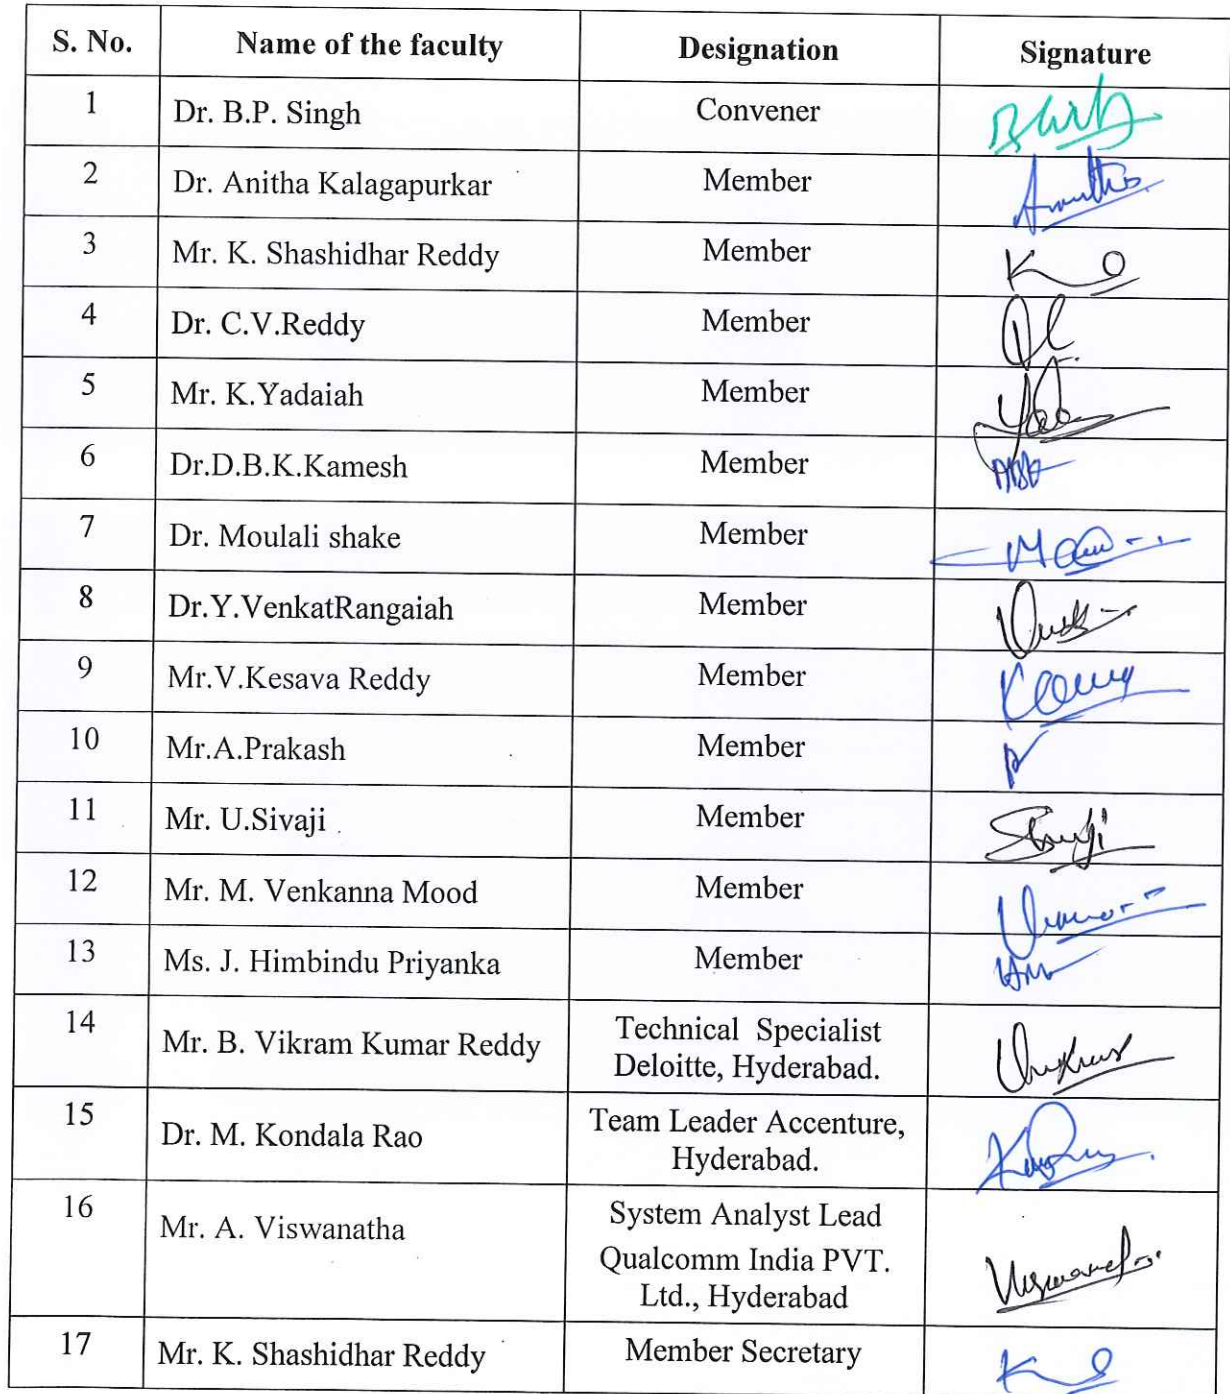 S. No. Name of the faculty Designation Signature
1 Dr. B.P. Singh Convener
2 Dr. Anitha Kalagapurkar Member
3 Mr. K. Shashidhar Reddy Member
4 Dr. C.V.Reddy Member
5 Mr. K.Yadaiah Member
6 Dr.D.B.K.Kamesh Member
7 Dr. Moulali shake Member
8 Dr.Y.VenkatRangaiah Member
9 Mr.V.Kesava Reddy Member
10 Mr.A.Prakash Member
11 Mr. U.Sivaji Member
12 Mr. M. Venkanna Mood Member
13 Ms. J. Himbindu Priyanka Member
14 Mr. B. Vikram Kumar Reddy Technical Specialist
Deloitte, Hyderabad.
15 Dr. M. Kondala Rao Team Leader Accenture,
Hyderabad.
16 Mr. A. Viswanatha System Analyst Lead
Qualcomm India PVT.
Ltd., Hyderabad
17 Mr. K. Shashidhar Reddy Member Secretary